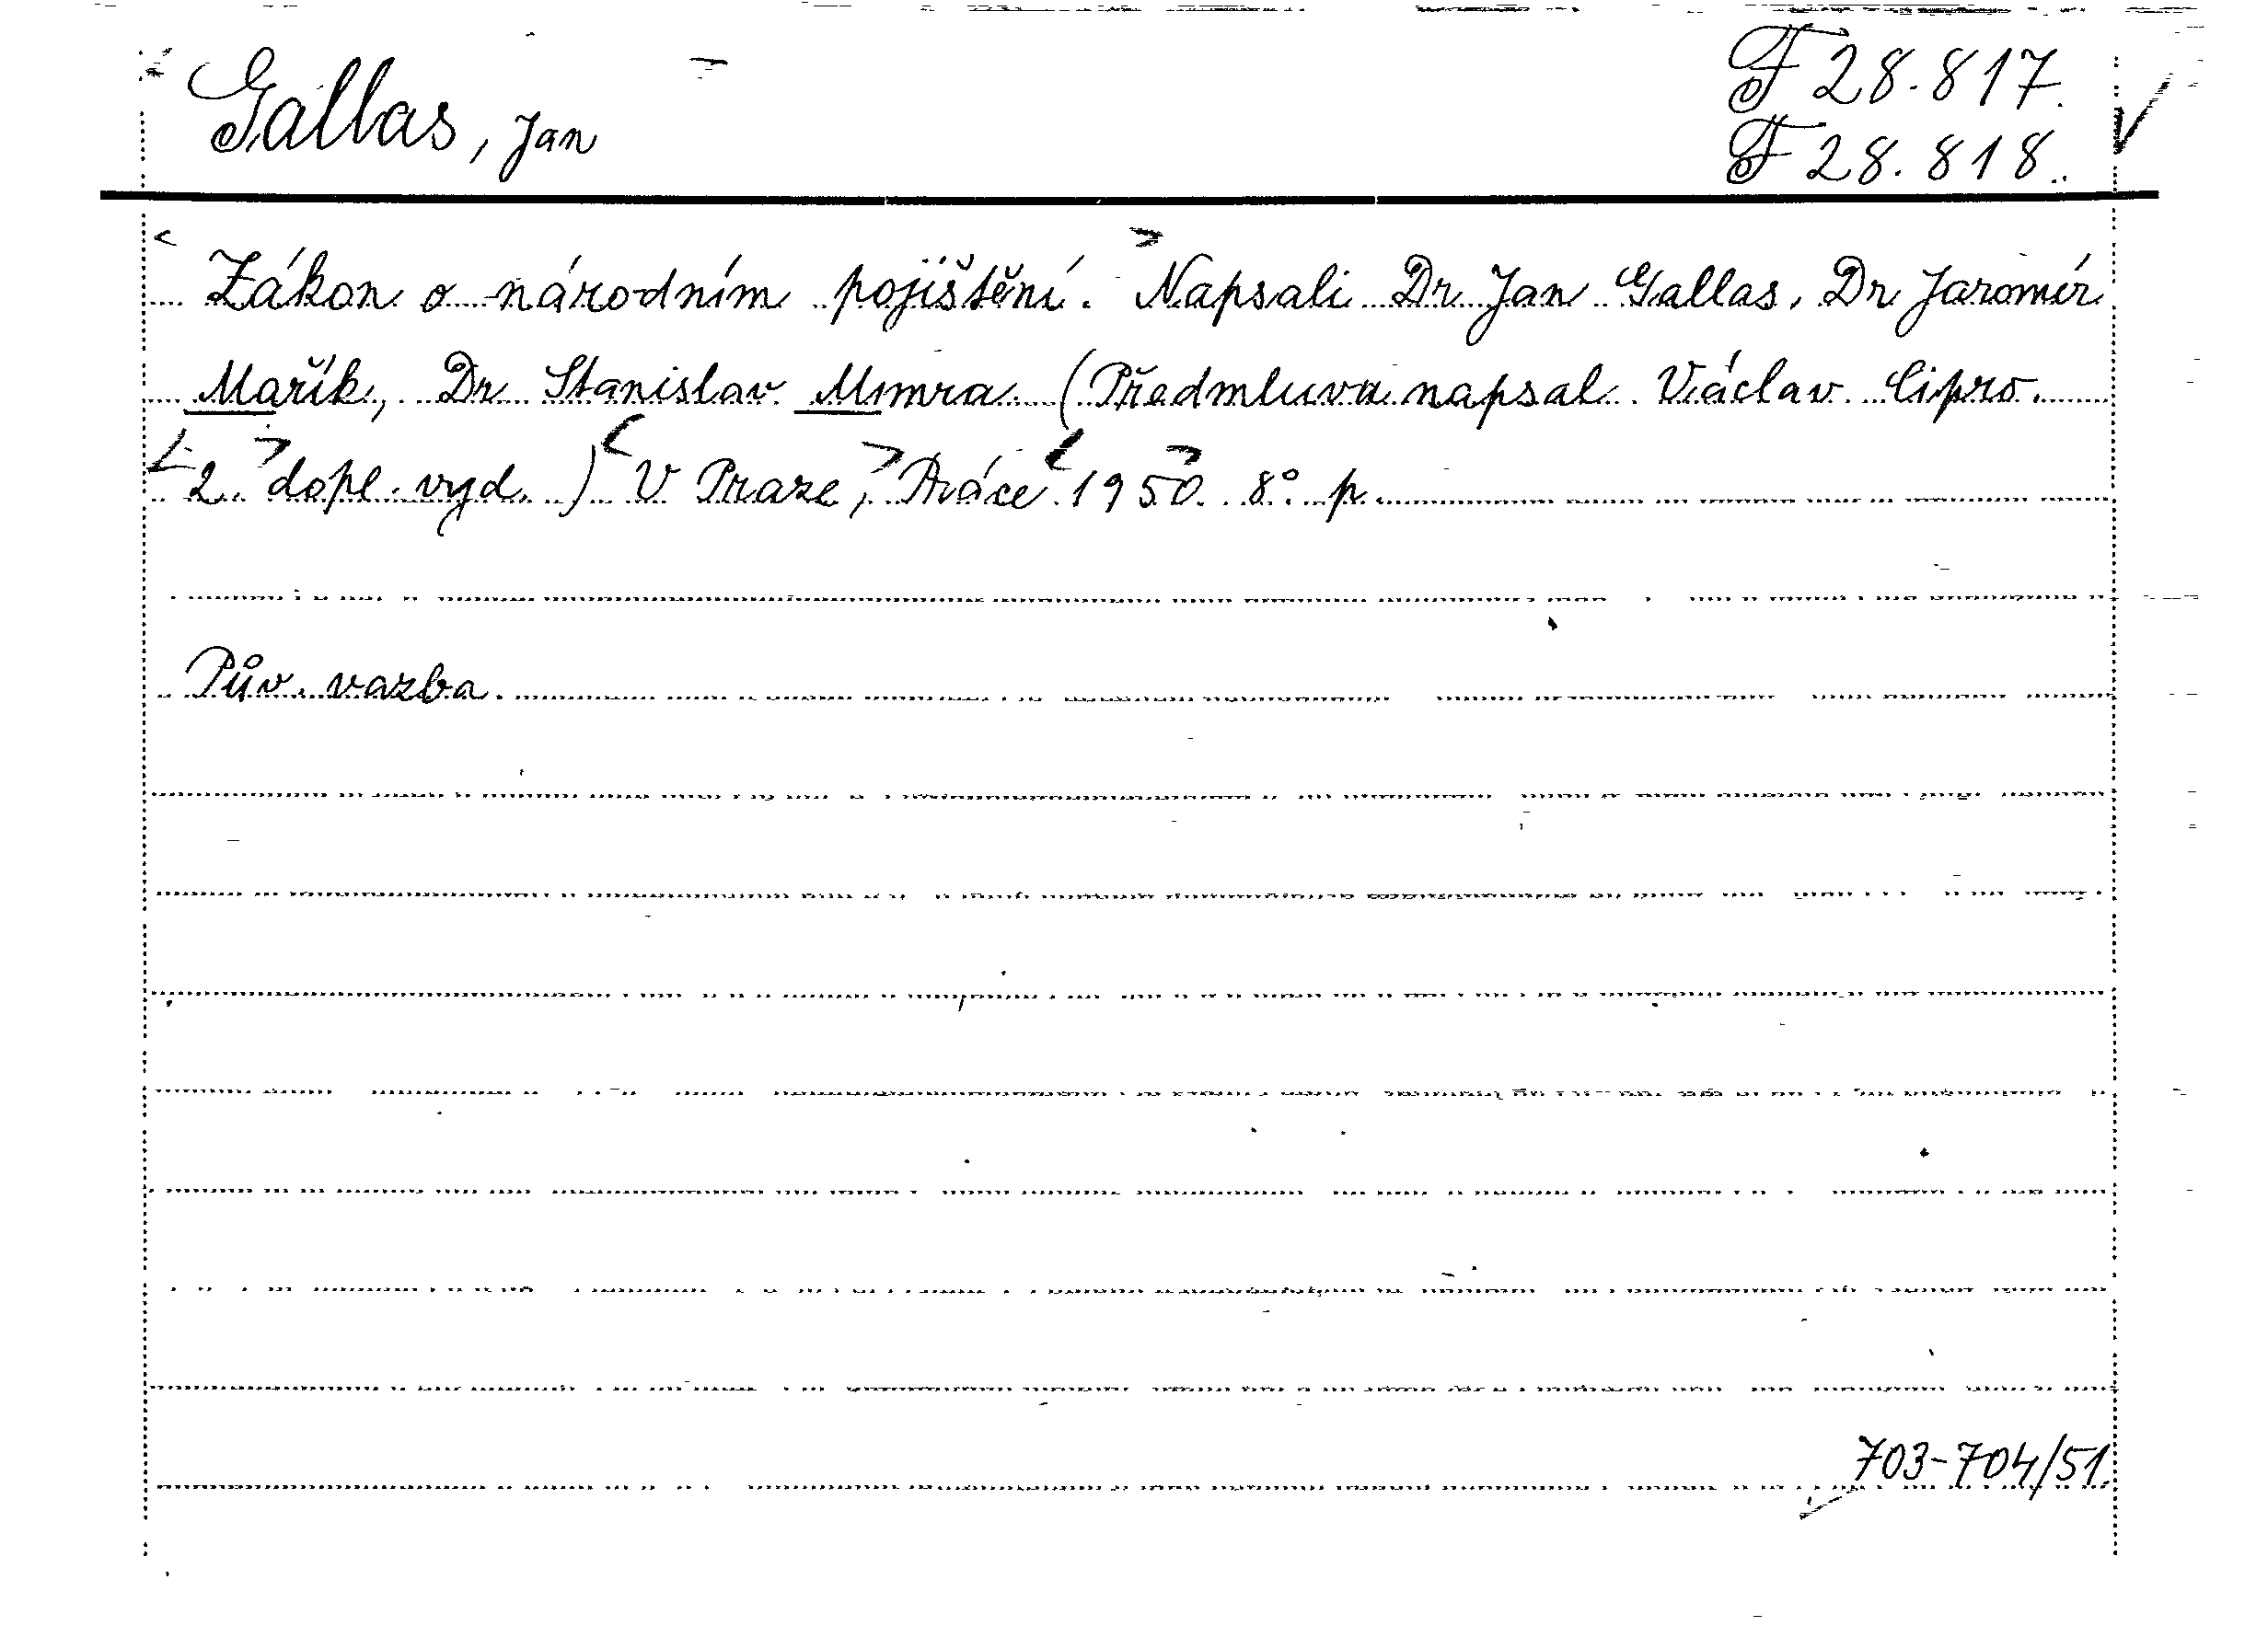 Gallas, Jan
F 28.817.
F 28.818.
Zákon o národním pojištění. Napsali Dr Jan Gallas, Dr Jaromír
Mařík, Dr Stanislav Mimra (Předmluvu napsal Václav Cipro.
2. dopl. vyd.) V Praze, Práce 1950. 8°. p.
Pův. vazba.
703-704/51.